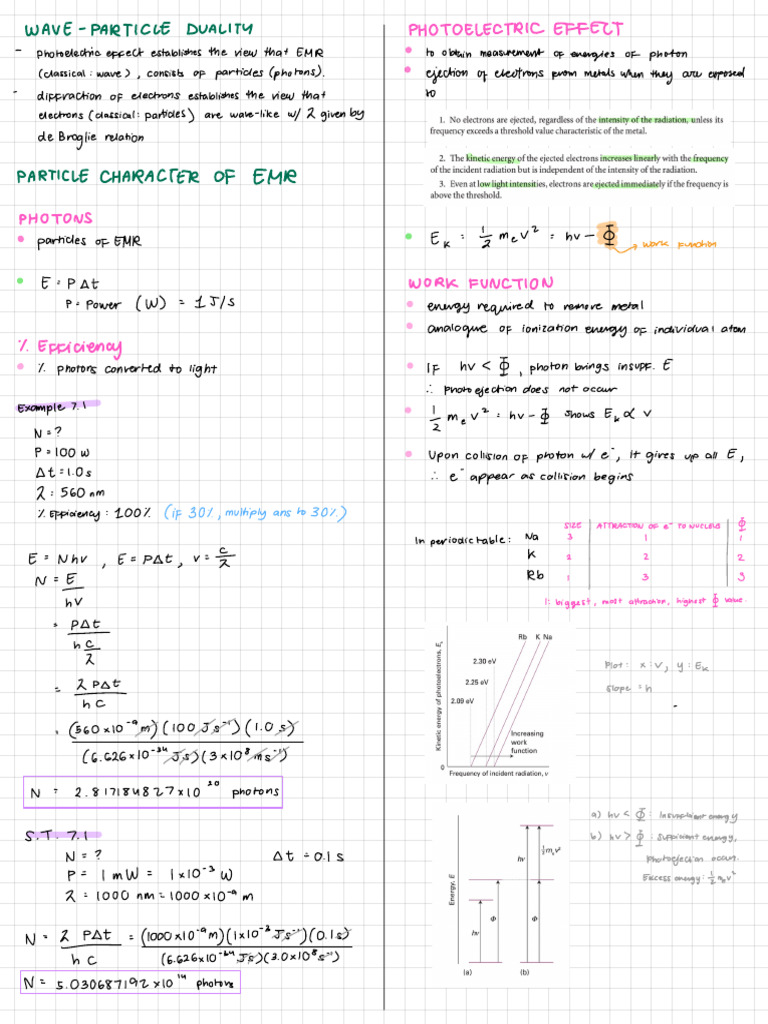 WAVE-PARTICLE DUALITY
- photoelectric effect establishes the view that EMR
(classical: wave), consists of particles (photons).
- diffraction of electrons establishes the view that
electrons (classical: particles) are wave-like w/ λ given by
de Broglie relation
PARTICLE CHARACTER OF EMR
PHOTONS
• particles of EMR
• E = PΔt
P = Power (W) = 1 J/s
% Efficiency
• % photons converted to light
Example 7.1
N = ?
P = 100 W
Δt = 1.0 s
λ : 560 nm
% Efficiency : 100% (if 30%, multiply ans to 30%)
E = Nhν , E = PΔt , ν = c/λ
N = E/hν
= PΔt / h c/λ
= λPΔt / hc
= (560×10⁻⁹ m)(100 Js⁻¹)(1.0 s) / (6.626×10⁻³⁴ Js)(3×10⁸ ms⁻¹)
N = 2.817184827×10²⁰ photons
S.T. 7.1
N = ? Δt = 0.1 s
P = 1 mW = 1×10⁻³ W
λ = 1000 nm = 1000×10⁻⁹ m
N = λ PΔt / hc = (1000×10⁻⁹ m)(1×10⁻³ Js⁻¹)(0.1 s) / (6.626×10⁻³⁴ Js)(3.0×10⁸ s⁻¹)
N = 5.030687192×10¹⁴ photons
PHOTOELECTRIC EFFECT
• to obtain measurement of energies of photon
• ejection of electrons from metals when they are exposed
to
1. No electrons are ejected, regardless of the intensity of the radiation, unless its
frequency exceeds a threshold value characteristic of the metal.
2. The kinetic energy of the ejected electrons increases linearly with the frequency
of the incident radiation but is independent of the intensity of the radiation.
3. Even at low light intensities, electrons are ejected immediately if the frequency is
above the threshold.
• Eₖ = 1/2 mₑv² = hν − Φ → work function
WORK FUNCTION
• energy required to remove metal
• analogue of ionization energy of individual atom
• If hν < Φ , photon brings insuff. E
∴ photoejection does not occur
• 1/2 mₑv² = hν − Φ shows Eₖ ∝ ν
• Upon collision of photon w/ e⁻, it gives up all E,
∴ e⁻ appear as collision begins
SIZE ATTRACTION OF e⁻ TO NUCLEUS Φ
In periodic table: Na 3 1 1
K 2 2 2
Rb 1 3 3
1: biggest, most attraction, highest Φ value.
Rb K Na
2.30 eV
2.25 eV
2.09 eV
Increasing
work
function
Kinetic energy of photoelectrons, Eₖ
0
Frequency of incident radiation, ν
Plot: x : ν, y : Eₖ
slope = h
Energy, E
hν
Φ
(a)
hν
½mₑv²
Φ
(b)
a) hν < Φ : Insufficient energy
b) hν > Φ : Sufficient energy,
photoejection occurs.
Excess energy: ½ mₑv²